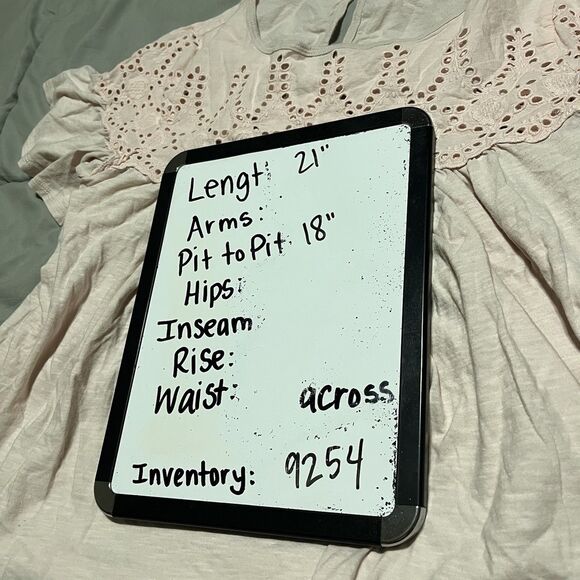 Lengt: 21"
Arms:
Pit to Pit 18"
Hips:
Inseam
Rise:
Waist: across
Inventory: 9254